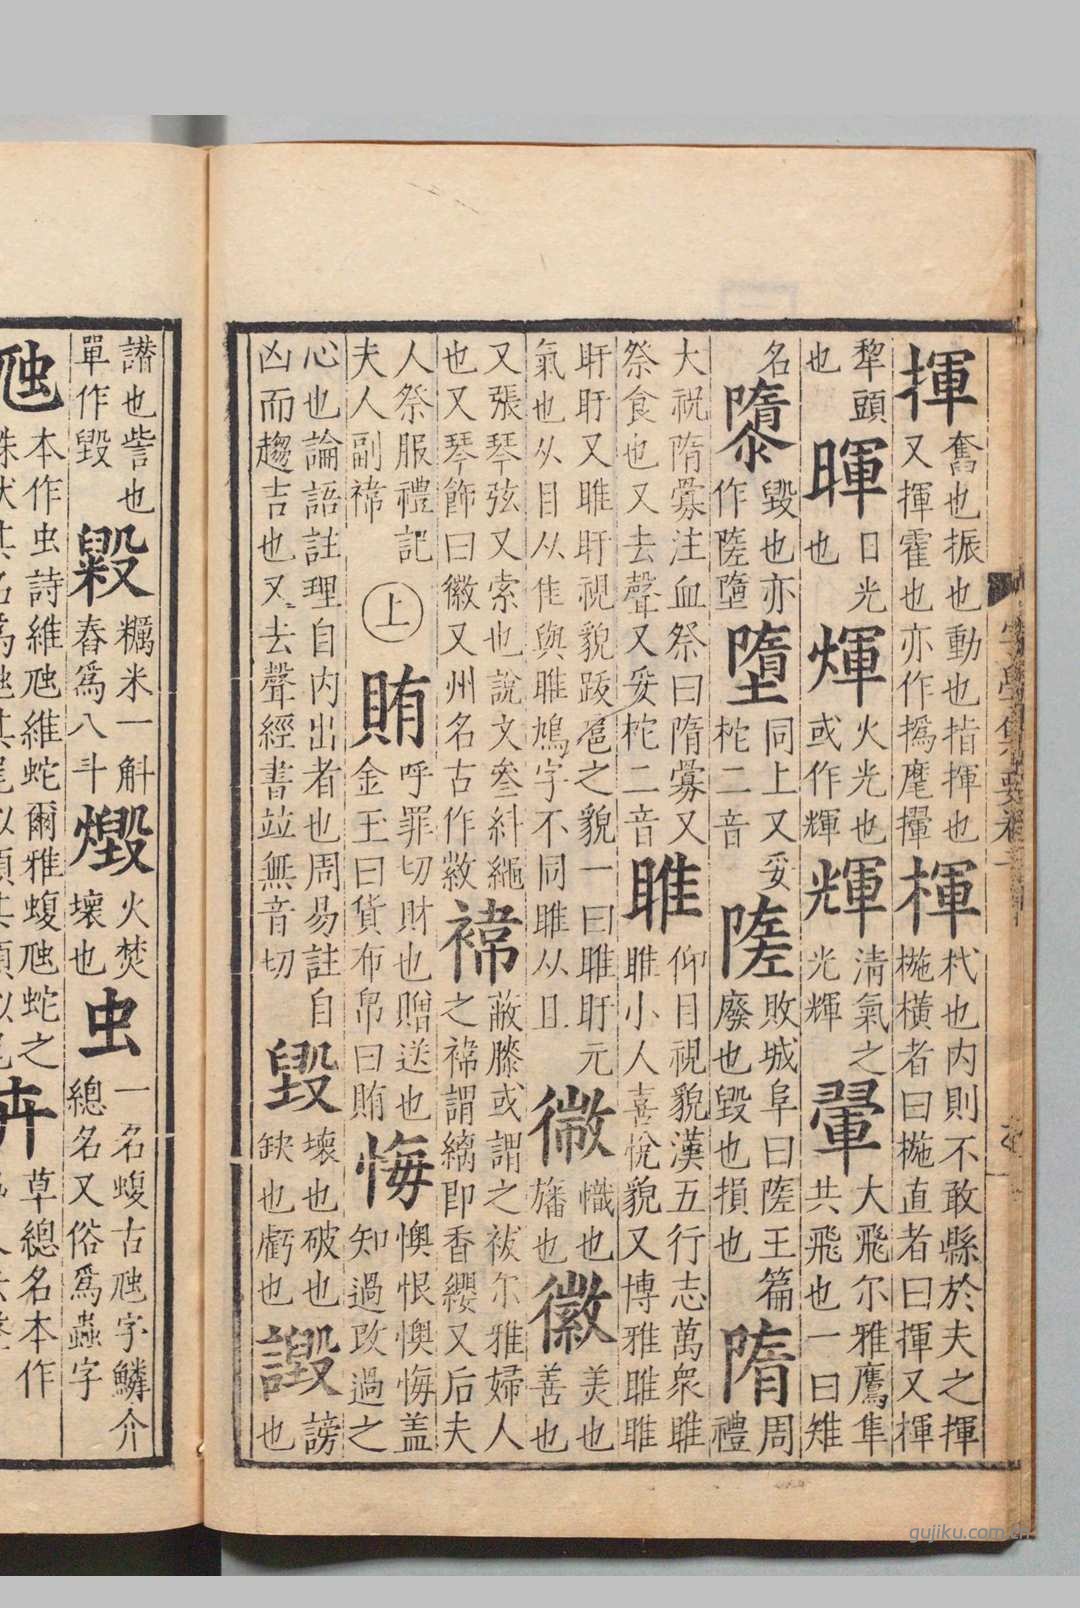 揮奮也振也動也指揮也又揮霍也亦作撝麾攈楎杙也内則不敢縣於夫之揮椸橫者曰椸直者曰揮又楎
犂頭也暉日光也煇火光也或作輝輝清氣之光輝翬大飛尔雅鷹隼共飛也一曰雉
名隳毀也亦作隓墮墮同上又妥柁二音隓敗城阜曰隓王篇廢也毀也損也隋周禮
大祝隋釁注血祭曰隋釁又祭食也又去聲又妥柁二音睢仰目視貌漢五行志萬衆睢睢小人喜悅貌又博雅睢睢
盱盱又睢盱視貌跋扈之貌一曰睢盱元氣也从目从隹與雎鳩字不同雎从且幑幟也旛也徽美也善也
又張琴弦又索也說文叄糾繩也又琴飾曰徽又州名古作敚褘蔽膝或謂之袚尔雅婦人之褘謂縭即香纓又后夫
人祭服禮記夫人副褘上賄呼罪切財也贈送也金玉曰貨布帛曰賄悔懊恨懊悔盖知過改過之
心也論語註理自内出者也周易註自凶而趨吉也又去聲經書並無音切毀壞也破也缺也虧也譭謗也
讃也訾也單作毀毇糲米一斛舂爲八斗燬火焚壞也虫一名蝮古虺字鱗介總名又俗爲蟲字
虺本作虫詩維虺維蛇爾雅蝮虺蛇之卉草總名本作
gujiku.com.cn